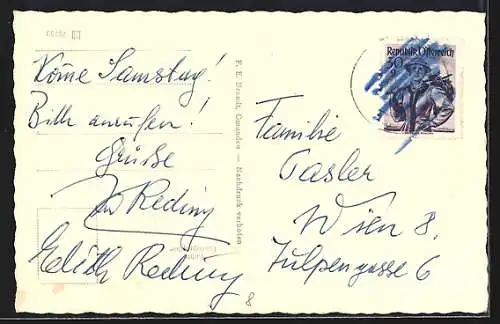 Kome Samstag!
Bitte anrufen!
Grüße
Reding
Edith Reding
8
F. E. Brandt, Gmunden — Nachdruck verboten
Republik Österreich
30
Familie
Tasler
Wien 8,
Tulpengasse 6